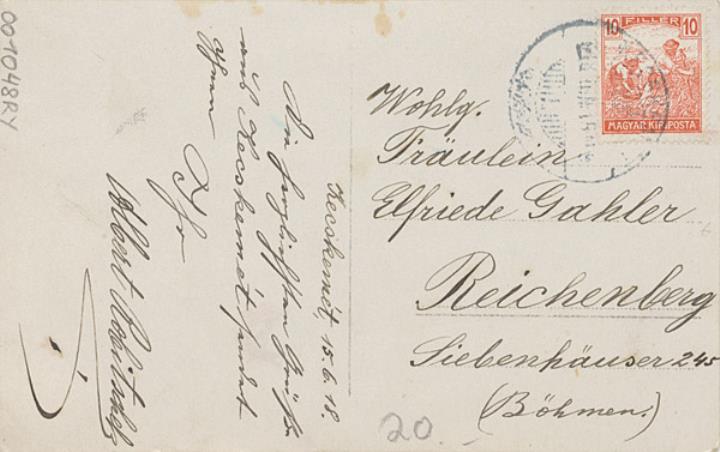 001048RY
Kecskemét, 15.6.18.
Die herzlichsten Grüße
aus Kecskemét sendet
Ihnen
Ihr
Albert
10 FILLER 10
MAGYAR KIR. POSTA
Wohlg.
Fräulein
Elfriede Gahler
Reichenberg
Siebenhäuser 245
(Böhmen.)
20.-